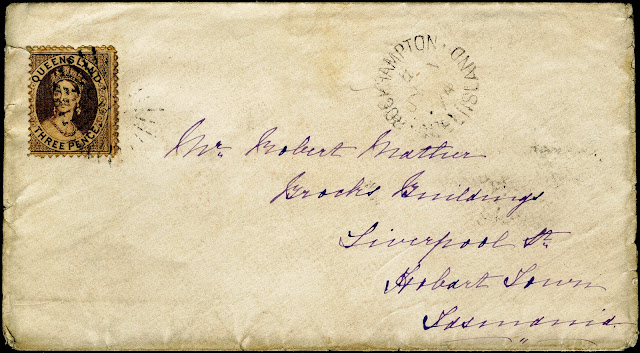 QUEENSLAND
THREE PENCE
ROCKHAMPTON
QUEENSLAND
Mr. Robert Mather
Brock's Buildings
Liverpool St.
Hobart Town
Tasmania